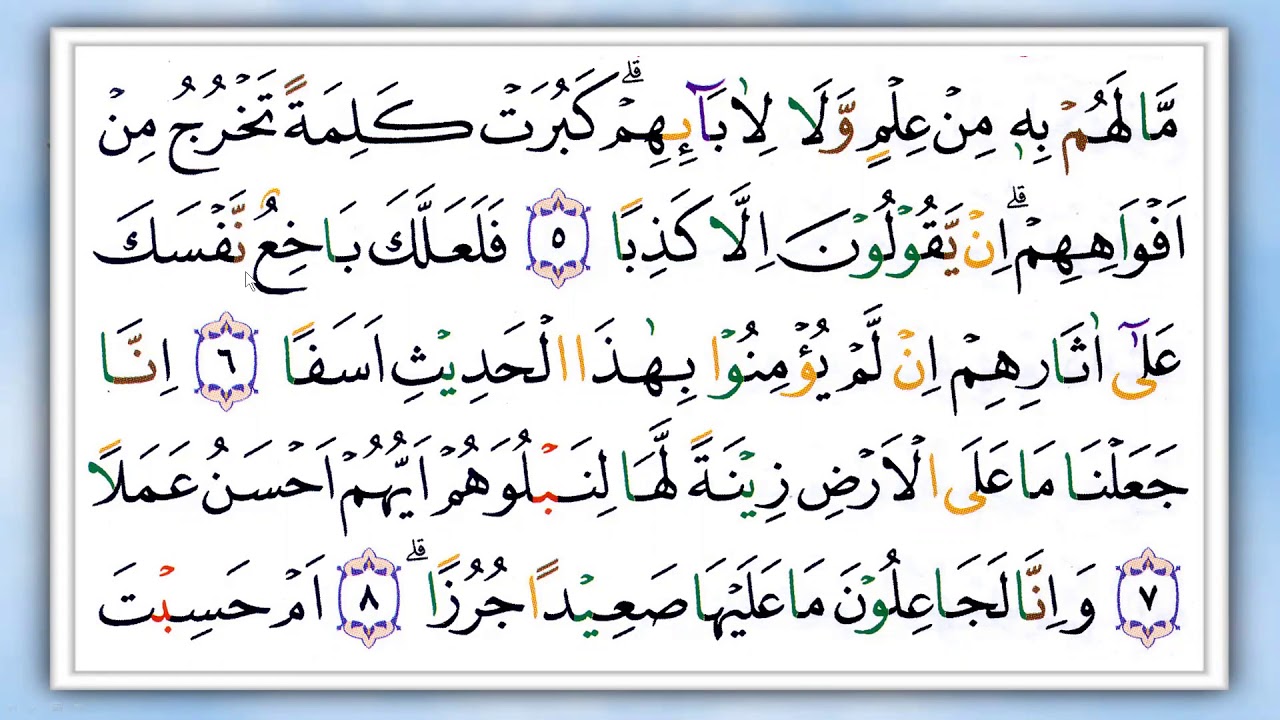 مَّا لَهُمْ بِهٖ مِنْ عِلْمٍ وَّلَا لِاٰبَآئِهِمْ ۗ كَبُرَتْ كَلِمَةً تَخْرُجُ مِنْ
اَفْوَاهِهِمْ ۗ اِنْ يَّقُوْلُوْنَ اِلَّا كَذِبًا ٥ فَلَعَلَّكَ بَاخِعٌ نَّفْسَكَ
عَلٰٓى اٰثَارِهِمْ اِنْ لَّمْ يُؤْمِنُوْا بِهٰذَا الْحَدِيْثِ اَسَفًا ٦ اِنَّا
جَعَلْنَا مَا عَلَى الْاَرْضِ زِيْنَةً لَّهَا لِنَبْلُوَهُمْ اَيُّهُمْ اَحْسَنُ عَمَلًا
٧ وَاِنَّا لَجَاعِلُوْنَ مَا عَلَيْهَا صَعِيْدًا جُرُزًا ۗ ٨ اَمْ حَسِبْتَ